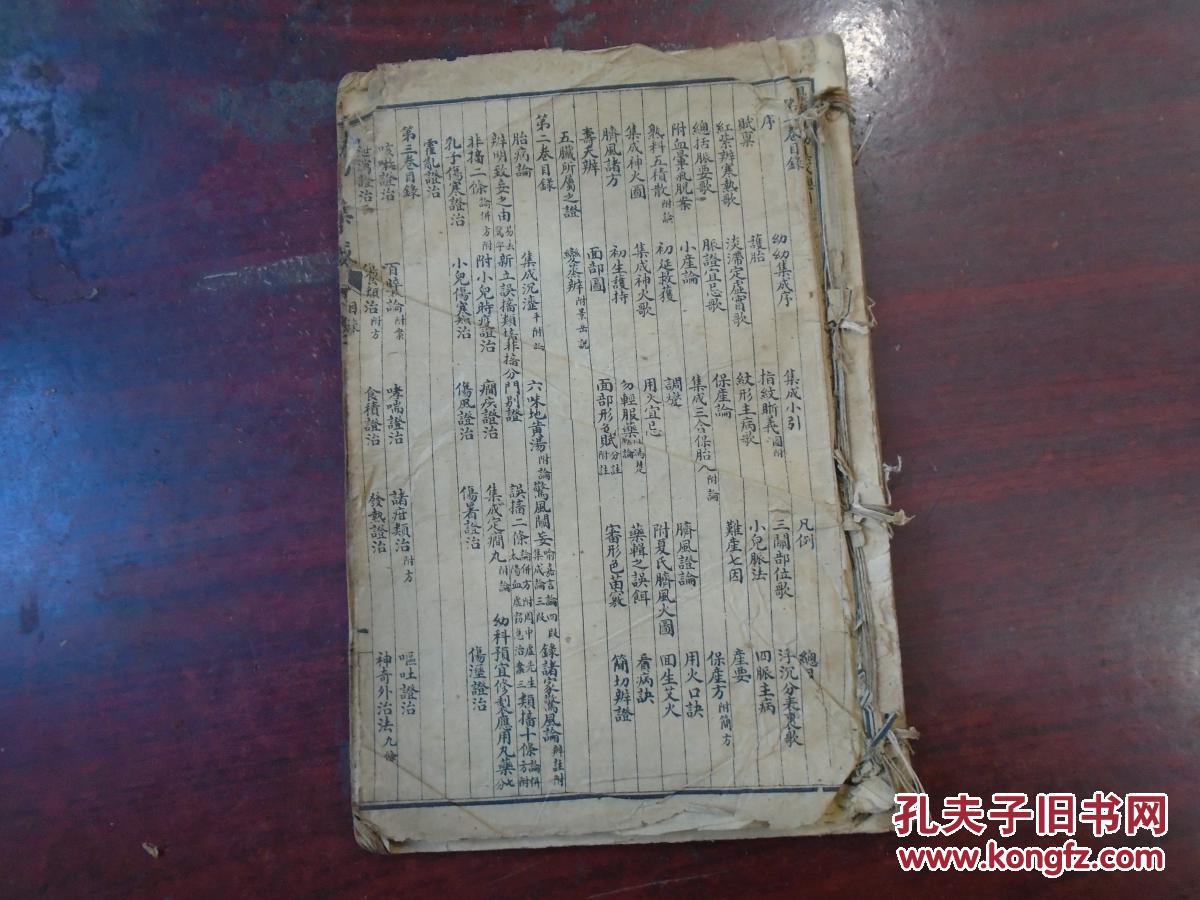 第一卷目錄
序 幼幼集成序 集成小引 凡例 總目
賦稟 護胎 指紋晰義 圖附 三關部位歌 浮沉分表裏歌
紅紫辨寒熱歌 淡滯定虛實歌 紋形主病歌 小兒脈法 四脈主病
總括脈要歌 脈證宜忌歌 保產論 難產七因 產要
附血暈氣脫案 小產論 集成三合保胎丸 附論 保產方 附簡方
熟料五積散 附論 初延救護 調變 臍風證論 用火口訣
集成神火圖 集成神火歌 用火宜忌 附夏氏臍風火圖 回生艾火
臍風諸方 初生護持 勿輕服藥 藥餌之誤 看病訣
壽夭辨 面部圖 面部形色賦 附註 審形色苗竅 簡切辨證
五臟所屬之證 變蒸辨 附景岳說
第二卷目錄
胎病論 集成沉瀣丹 附論 六味地黃湯 附論 驚風闢妄 喻嘉言論四段 集成論三段 錄諸家驚風論 辨註附
辨明致妄之由 新立誤搐類搐非搐分門別證 誤搐二條 類搐十條
非搐二條 論併方附 附小兒時疫證治 癇疾證治 集成定癇丸 附論 幼科預宜修製應用丸藥
乳子傷寒證治 小兒傷寒類治 傷風證治 傷暑證治 傷溼證治
霍亂證治
第三卷目錄
咳嗽證治 百晬論 附案 哮喘證治 諸疳類治 附方 嘔吐證治
泄瀉證治 類治 附方 食積證治 發熱證治 神奇外治法 九條
孔夫子旧书网
www.kongfz.com